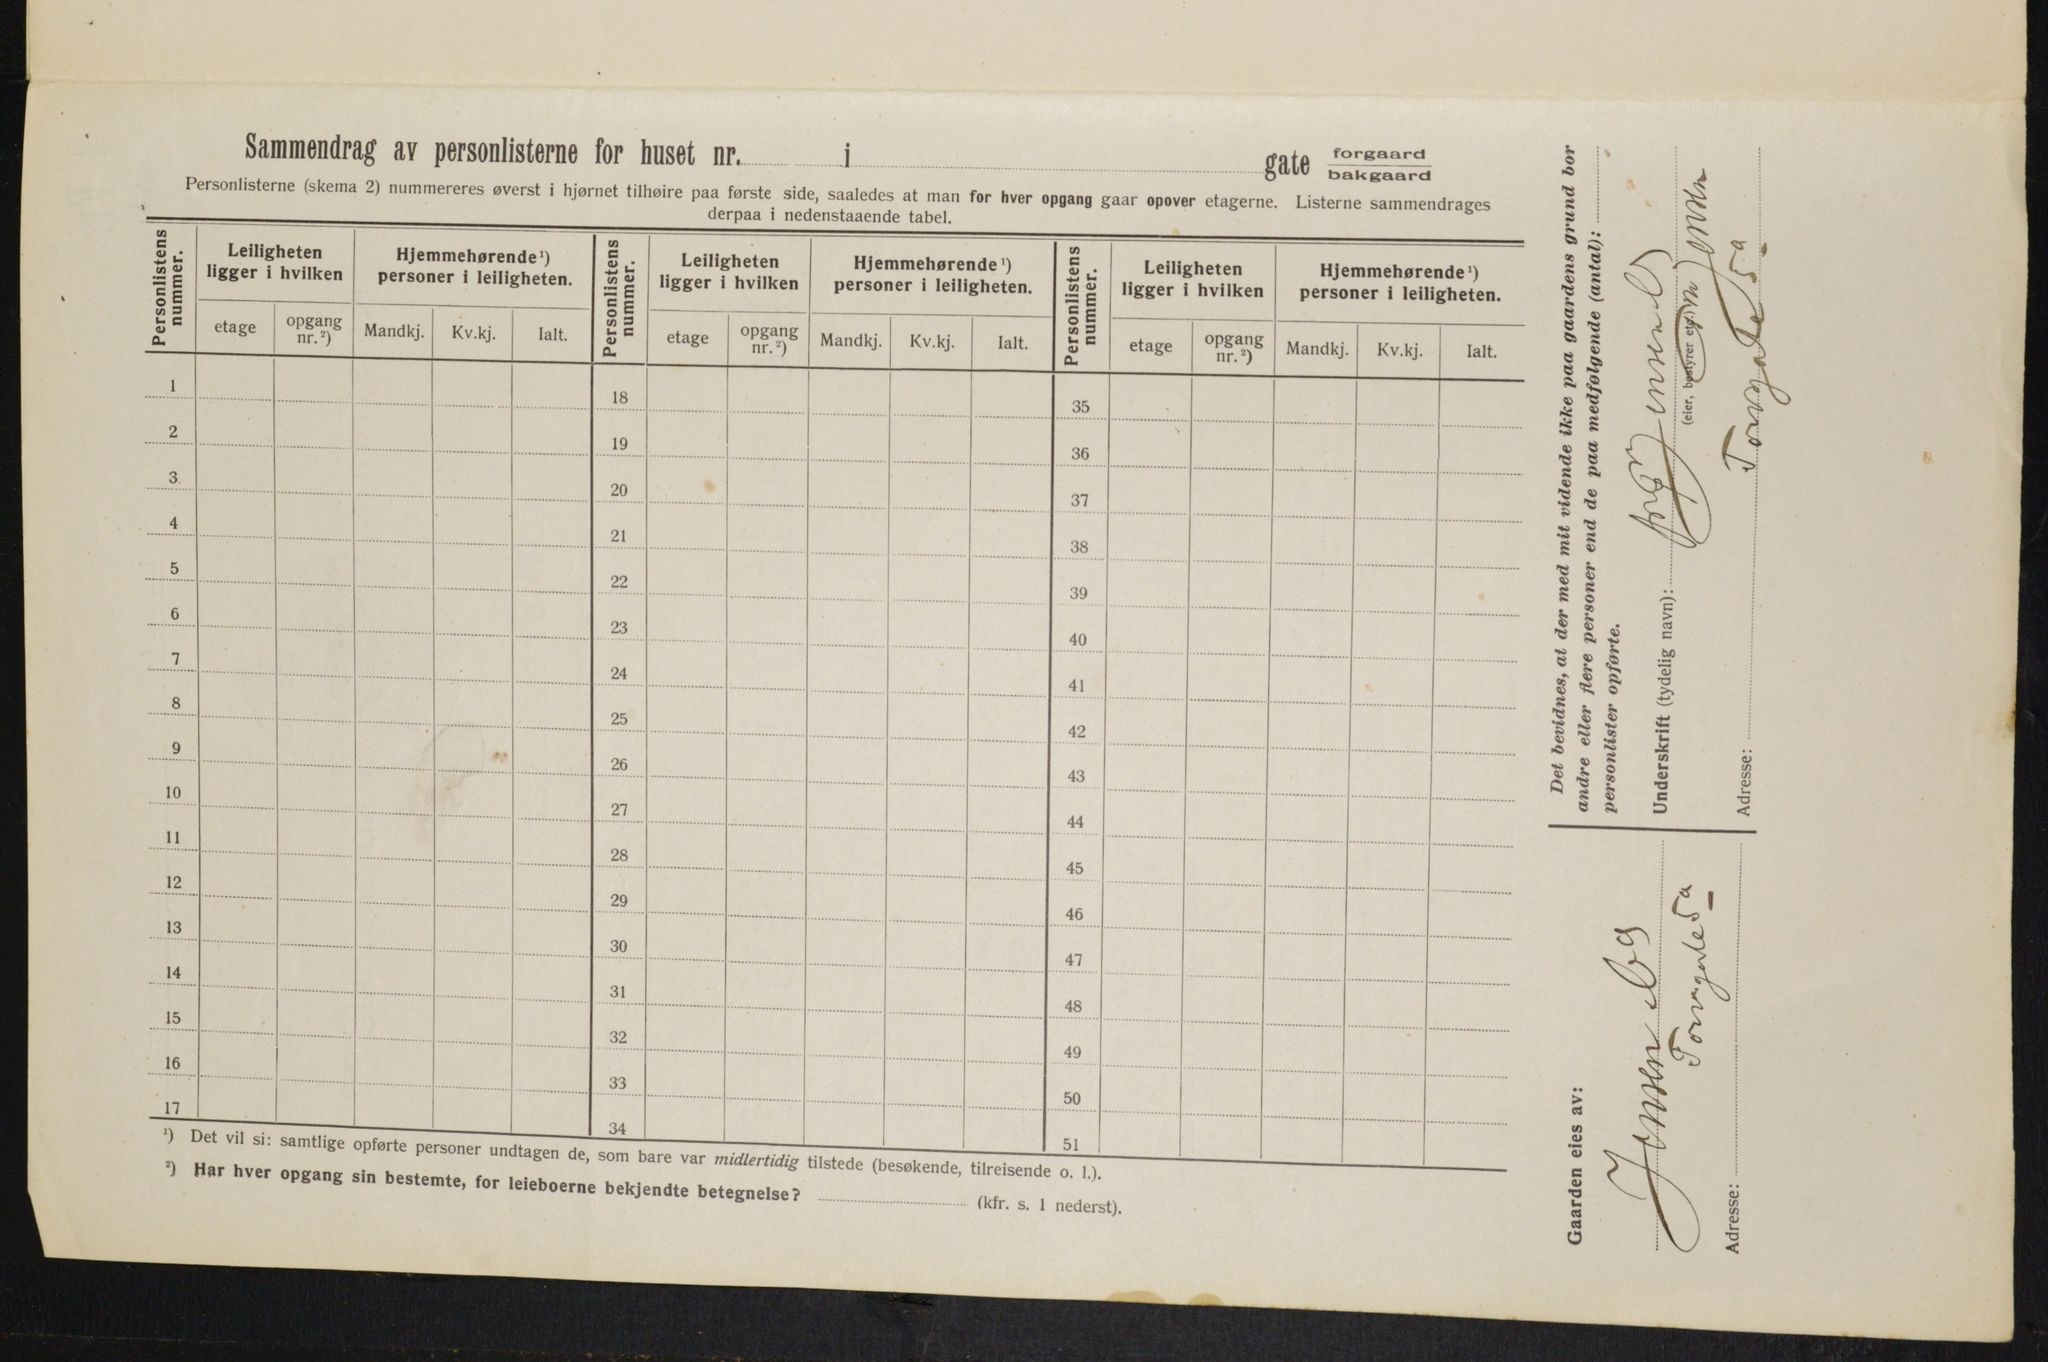 Sammendrag av personlisterne for huset nr. i gate forgaard
bakgaard
Personlisterne (skema 2) nummereres øverst i hjørnet tilhøire paa første side, saaledes at man for hver opgang gaar opover etagerne. Listerne sammendrages
derpaa i nedenstaaende tabel.
Personlistens nummer. Leiligheten ligger i hvilken Hjemmehørende¹) personer i leiligheten. Personlistens nummer. Leiligheten ligger i hvilken Hjemmehørende¹) personer i leiligheten. Personlistens nummer. Leiligheten ligger i hvilken Hjemmehørende¹) personer i leiligheten.
etage opgang nr.²) Mandkj. Kv.kj. Ialt. etage opgang nr.²) Mandkj. Kv.kj. Ialt. etage opgang nr.²) Mandkj. Kv.kj. Ialt.
1 18 35
2 19 36
3 20 37
4 21 38
5 22 39
6 23 40
7 24 41
8 25 42
9 26 43
10 27 44
11 28 45
12 29 46
13 30 47
14 31 48
15 32 49
16 33 50
17 34 51
¹) Det vil si: samtlige opførte personer undtagen de, som bare var midlertidig tilstede (besøkende, tilreisende o. l.).
²) Har hver opgang sin bestemte, for leieboerne bekjendte betegnelse? (kfr. s. 1 nederst).
Gaarden eies av:
Jensen & Co
Torvgade 5a
Adresse:
Det bevidnes, at der med mit vidende ikke paa gaardens grund bor
andre eller flere personer end de paa medfølgende (antal):
personlister opførte.
Underskrift (tydelig navn): Jensen & Co
(eier, bestyrer etc.) Jensen
Adresse: Torvgade 5a